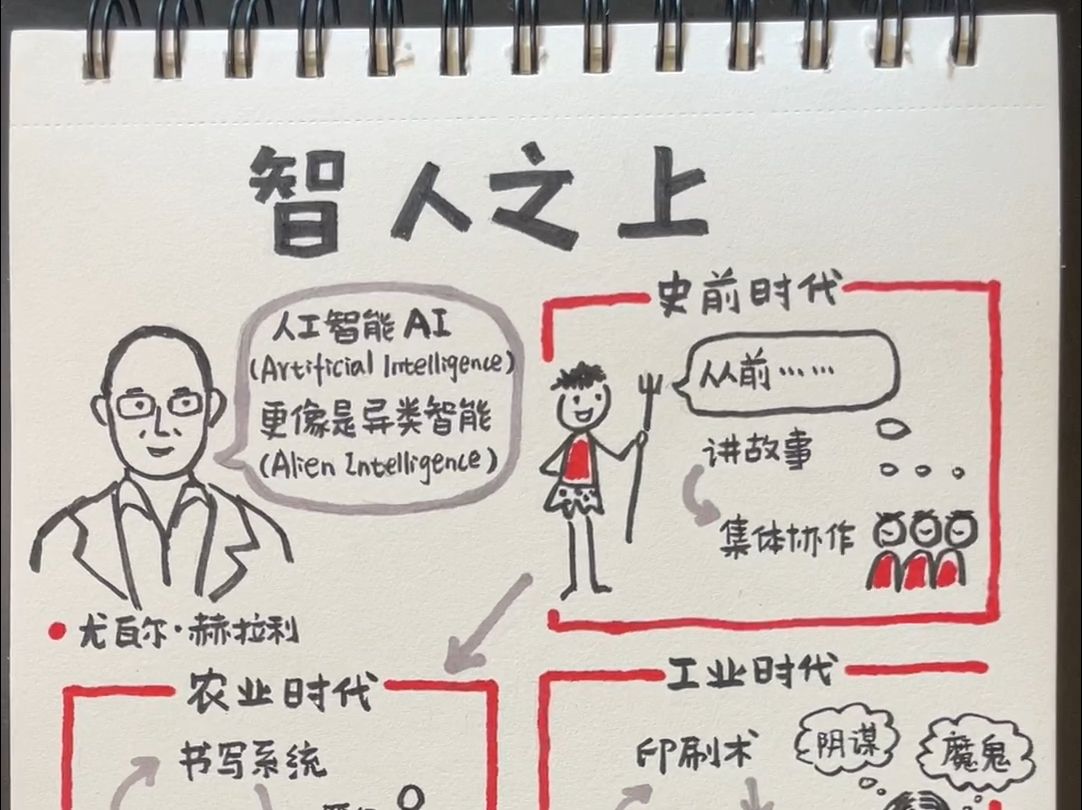 智人之上
人工智能 AI
(Artificial Intelligence)
更像是异类智能
(Alien Intelligence)
尤瓦尔·赫拉利
史前时代
从前……
讲故事
集体协作
农业时代
书写系统
工业时代
印刷术
阴谋
魔鬼